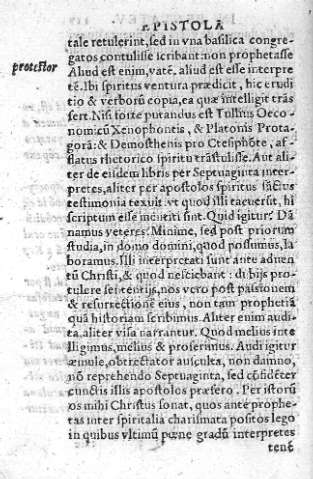 EPISTOLA
tale retulerint, sed in vna basilica congre-
gatos contulisse scribant: non prophetasse
protestor
Aliud est enim, vatē. aliud est esse interpre
tē. Ibi spiritus ventura prædicit, hic erudi
tio & verborū copia, ea quæ intelligit trās
fert. Nisi forte putandus est Tullius Oeco-
nomicū Xenophontis, & Platonis Prota-
gorā: & Demosthenis pro Ctesiphōte, af-
flatus rhetorico spiritu trāstulisse. Aut ali-
ter de eisdem libris per Septuaginta inter-
pretes, aliter per apostolos spiritus sāctus
testimonia texuit: vt quod illi tacuerūt, hi
scriptum esse mentiti sint. Quid igitur? Dā
namus veteres? Minime, sed post priorum
studia, in domo domini, quod possumus, la
boramus. Illi interpretati sunt ante aduen
tū Christi, & quod nesciebant: dubijs pro
tulere sententijs, nos vero post passionem
& resurrectionē eius, non tam prophetiā
quā historiam scribimus. Aliter enim audi
ta, aliter visa narrantur. Quod melius inte
lligimus, melius & proferimus. Audi igitur
æmule, obtrectator ausculta, non damno,
nō reprehendo Septuaginta, sed cōfidēter
cunctis illis apostolos præfero. Per istorū
os mihi Christus sonat, quos ante prophe-
tas inter spiritalia charismata positos lego
in quibus vltimū pœne gradū interpretes
tenē